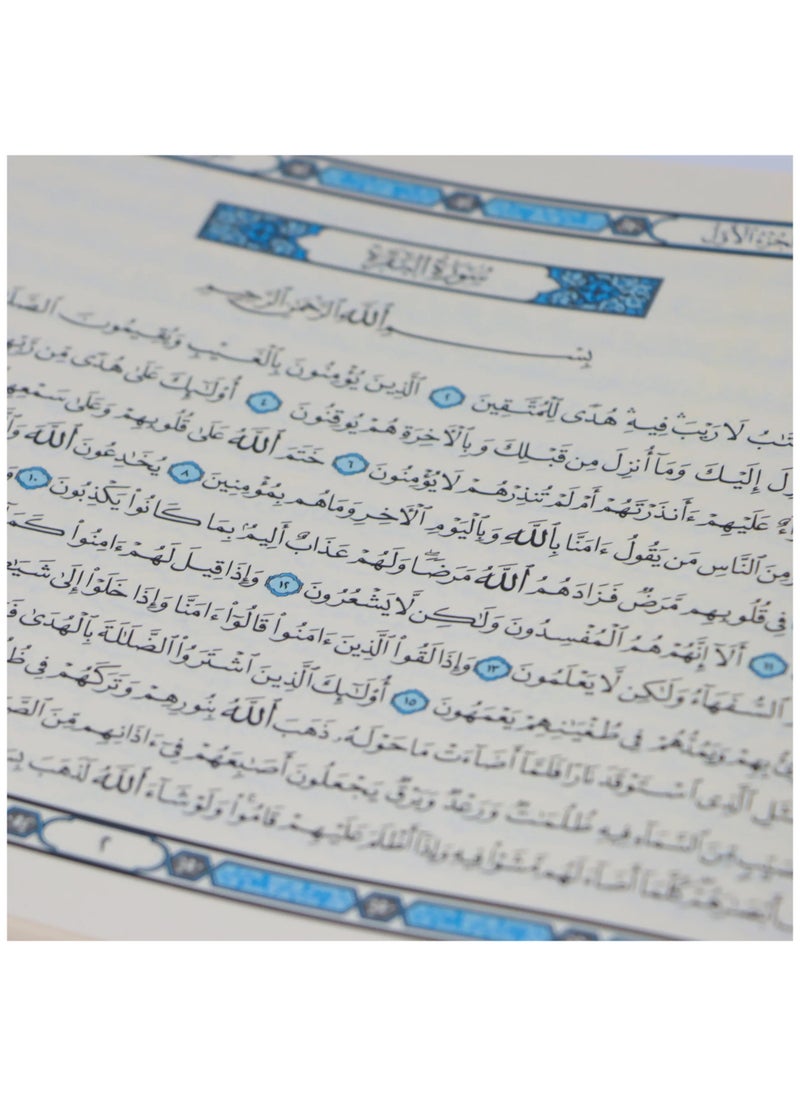 الجزء الأول
سورة البقرة
بِسْمِ ٱللَّهِ ٱلرَّحْمَٰنِ ٱلرَّحِيمِ
لَا رَيْبَ ۛ فِيهِ ۛ هُدًى لِّلْمُتَّقِينَ ٢ ٱلَّذِينَ يُؤْمِنُونَ بِٱلْغَيْبِ وَيُقِيمُونَ
إِلَيْكَ وَمَآ أُنزِلَ مِن قَبْلِكَ وَبِٱلْءَاخِرَةِ هُمْ يُوقِنُونَ ٤ أُو۟لَٰٓئِكَ عَلَىٰ هُدًى مِّن
عَلَيْهِمْ ءَأَنذَرْتَهُمْ أَمْ لَمْ تُنذِرْهُمْ لَا يُؤْمِنُونَ ٦ خَتَمَ ٱللَّهُ عَلَىٰ قُلُوبِهِمْ وَعَلَىٰ
ٱلنَّاسِ مَن يَقُولُ ءَامَنَّا بِٱللَّهِ وَبِٱلْيَوْمِ ٱلْءَاخِرِ وَمَا هُم بِمُؤْمِنِينَ ٨ يُخَٰدِعُونَ ٱللَّهَ
فِى قُلُوبِهِم مَّرَضٌ فَزَادَهُمُ ٱللَّهُ مَرَضًا ۖ وَلَهُمْ عَذَابٌ أَلِيمٌۢ بِمَا كَانُوا۟ يَكْذِبُونَ ١٠
١١ أَلَآ إِنَّهُمْ هُمُ ٱلْمُفْسِدُونَ وَلَٰكِن لَّا يَشْعُرُونَ ١٢ وَإِذَا قِيلَ لَهُمْ ءَامِنُوا۟
ٱلسُّفَهَآءُ وَلَٰكِن لَّا يَعْلَمُونَ ١٣ وَإِذَا لَقُوا۟ ٱلَّذِينَ ءَامَنُوا۟ قَالُوٓا۟ ءَامَنَّا وَإِذَا خَلَوْا۟ إِلَىٰ
وَيَمُدُّهُمْ فِى طُغْيَٰنِهِمْ يَعْمَهُونَ ١٥ أُو۟لَٰٓئِكَ ٱلَّذِينَ ٱشْتَرَوُا۟ ٱلضَّلَٰلَةَ بِٱلْهُدَىٰ
ٱلَّذِى ٱسْتَوْقَدَ نَارًا فَلَمَّآ أَضَآءَتْ مَا حَوْلَهُۥ ذَهَبَ ٱللَّهُ بِنُورِهِمْ وَتَرَكَهُمْ فِى
مِّنَ ٱلسَّمَآءِ فِيهِ ظُلُمَٰتٌ وَرَعْدٌ وَبَرْقٌ يَجْعَلُونَ أَصَٰبِعَهُمْ فِىٓ ءَاذَانِهِم مِّنَ
كُلَّمَآ أَضَآءَ لَهُم مَّشَوْا۟ فِيهِ وَإِذَآ أَظْلَمَ عَلَيْهِمْ قَامُوا۟ ۚ وَلَوْ شَآءَ ٱللَّهُ لَذَهَبَ
٢